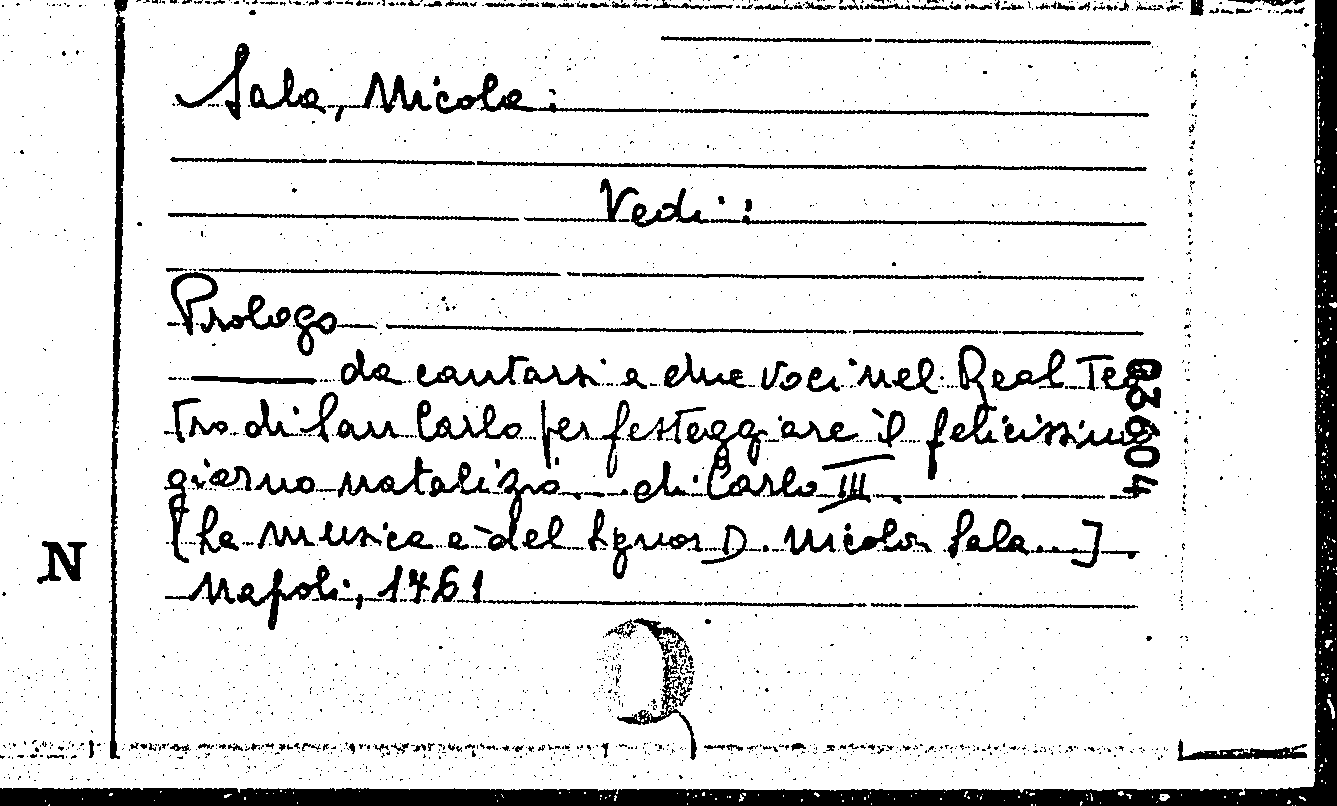 Sala, Nicola:
Vedi:
Prologo
——— da cantarsi a due voci nel Real Tea
tro di San Carlo per festeggiare il felicissimo
giorno natalizio... di Carlo III.
[La musica è del Signor D. Nicola Sala...].
Napoli, 1761
N
03604